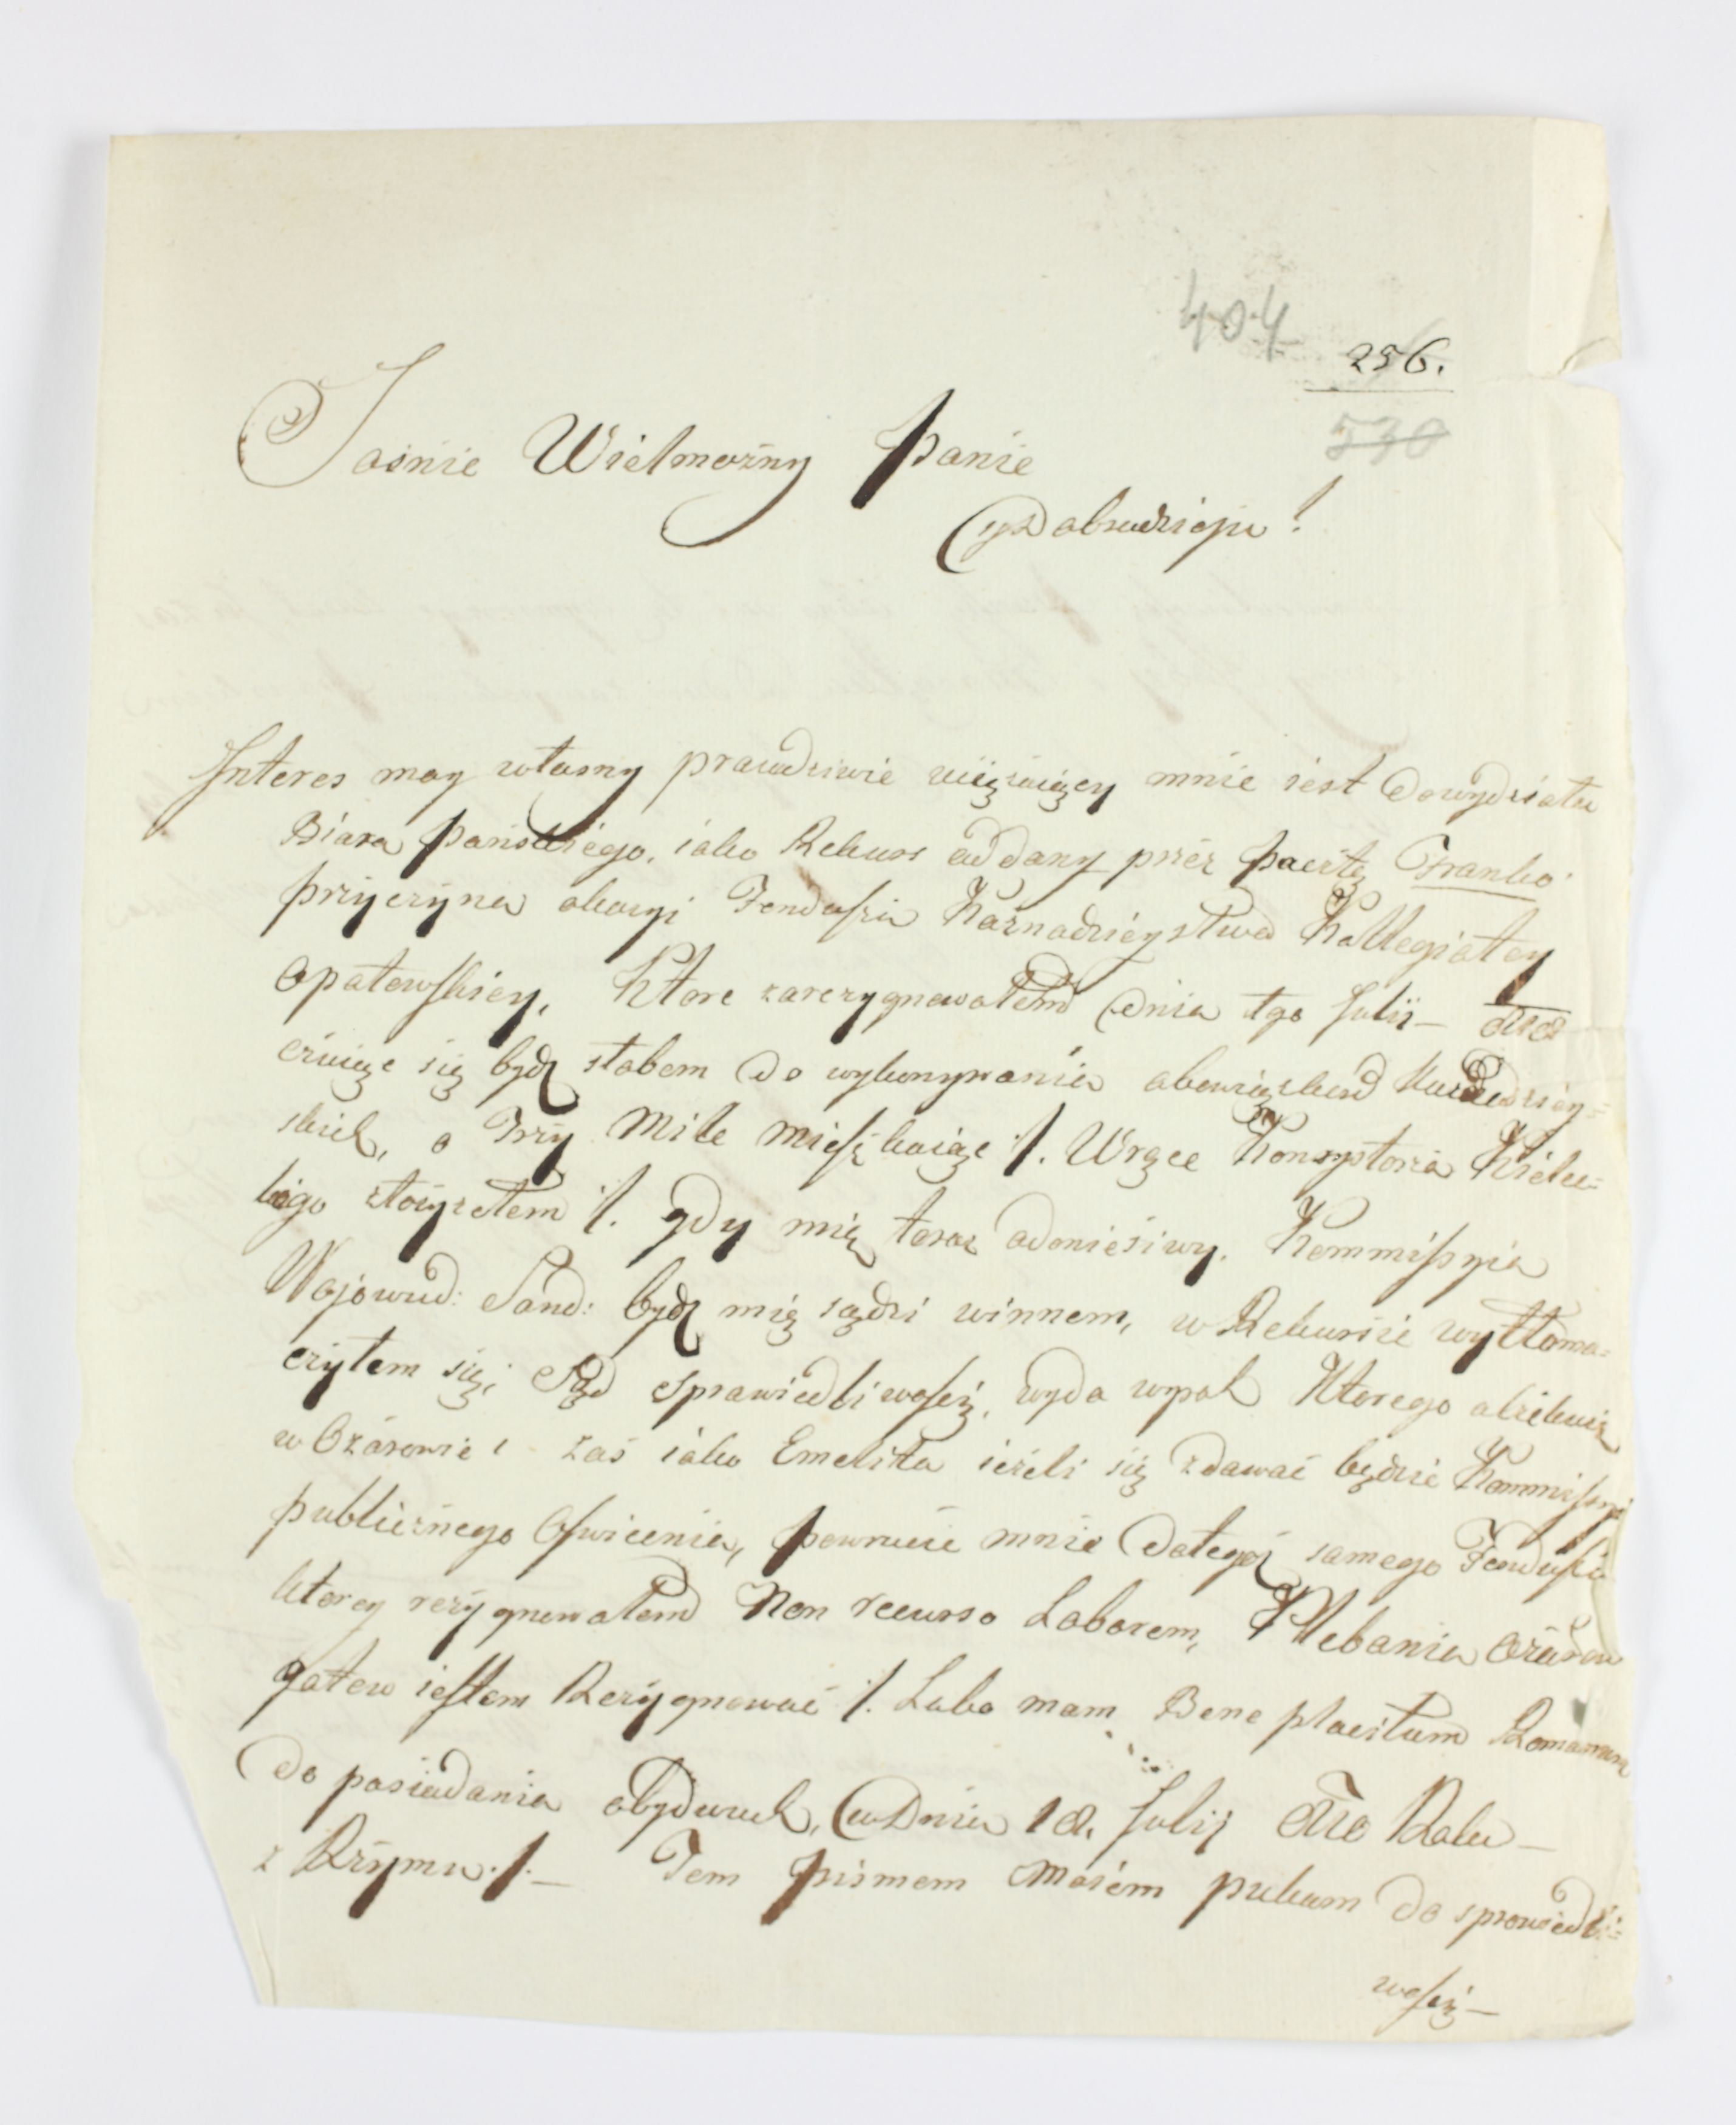 404
256.
530
Jaśnie Wielmożny Panie
Dobrodzieju!
Interes moy własny prawdziwie mnie iest do wydziału
Biora Pańskiego, iako Rekurs oddany przez Pocztę Franko
przyczyna okazyi Fondusza Kaznodzieystwa Kollegiatey
Opatowskiey, Ktore zarezygnowałem Dnia Julii —
czuiąc się bydź słabem do wykonywania obowiązkow Kaznodziey=
skich, o Trzy Mile mieszkaiąc /. W ręce Konsystorza Kielec=
kiego złożyłem /. gdy mię teraz Kommissyia
Wojewud: Sand: bydź mię sądzi winnem, w Rekursie wytłoma=
czyłem się, Sąd sprawiedliwości, wyda Ktorego
w Ożarowie zaś iako Emerita ieżeli się zdawać będzie Kommissyi
publicznego Oświcenia, powrucić mnie do tegoż samego Fonduszu
ktorey rezygnowałem Non recuso Laborem, Plebania
gotow iestem Rezygnować /. Lubo mam Bene placitum Romanum
do posiadania obydwuch, w Dniu 18. Julij Roku —
z Rzymu /. — Tem pismem moiem pukam do sprawiedli=
wości —